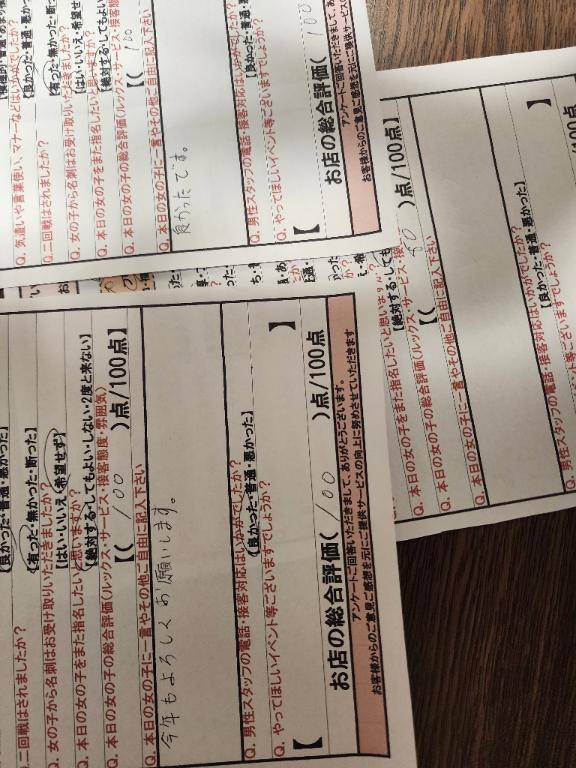 Q. 気遣いや言葉使い、マナーなどはいかがでしたか?
【良かった・普通・悪かった】
Q. 二回戦はされましたか?
【有った・無かった・断った】
Q. 女の子から名刺はお受け取りいただきましたか?
【はい・いいえ・希望せず】
Q. 本日の女の子をまた指名したいと思いますか?
【絶対する・してもよい
Q. 本日の女の子の総合評価(ルックス・サービス・接客態度
【( 100
Q. 本日の女の子に一言やその他ご自由に記入下さい
良かったです。
Q. 男性スタッフの電話・接客対応はいかがでしたか?
【良かった・普通・悪かった
Q. やってほしいイベント等ございますでしょうか?
【
お店の総合評価( 100
アンケートご回答いただきまして、あ
お客様からのご意見ご感想を元にご提供サービスの
Q. 本日の女の子をまた指名したいと思いますか?
【絶対する・しても
Q. 本日の女の子の総合評価(ルックス・サービス・接
【(
)点/100点】
Q. 本日の女の子に一言やその他ご自由に記入下さい
Q. 男性スタッフの電話・接客対応はいかがでしたか?
【良かった・普通・悪かった】
イベント等ございますでしょうか?
】
)点/100点
【良かった・普通・悪かった】
二回戦はされましたか?
【有った・無かった・断った】
Q. 女の子から名刺はお受け取りいただきましたか?
【はい・いいえ・希望せず】
Q. 本日の女の子をまた指名したいと思いますか?
【絶対する・してもよい・しない・2度と来ない】
Q. 本日の女の子の総合評価(ルックス・サービス・接客態度・雰囲気)
【( 100 )点/100点】
Q. 本日の女の子に一言やその他ご自由に記入下さい
今年もよろしくお願いします。
Q. 男性スタッフの電話・接客対応はいかがでしたか?
【良かった・普通・悪かった】
Q. やってほしいイベント等ございますでしょうか?
【 】
お店の総合評価( 100 )点/100点
アンケートご回答いただきまして、ありがとうございます。
お客様からのご意見ご感想を元にご提供サービスの向上に努めさせていただきます